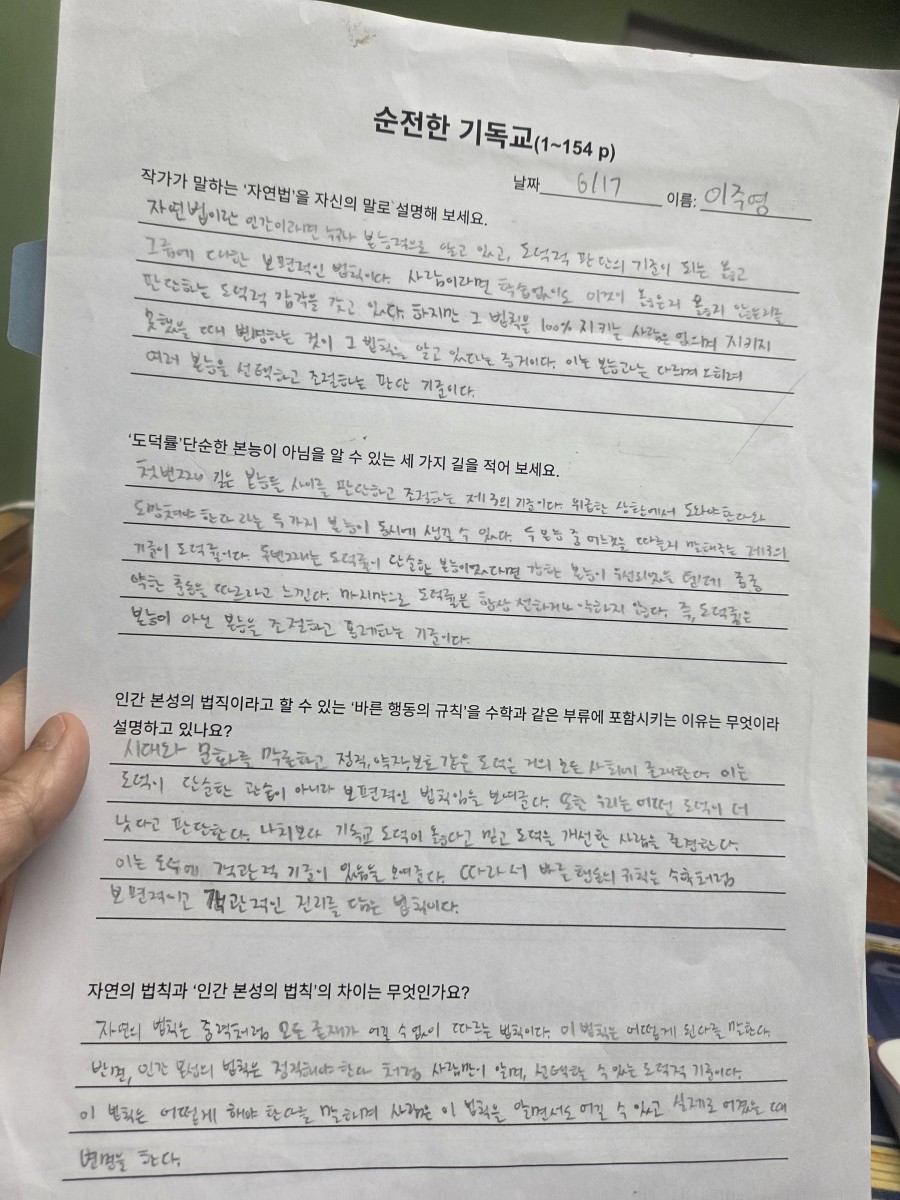 순전한 기독교(1~154 p)
날짜 6/17 이름: 이주영
작가가 말하는 '자연법'을 자신의 말로 설명해 보세요.
자연법이란 인간이라면 누구나 본능적으로 알고 있고, 도덕적 판단의 기준이 되는 옳고
그름에 대한 보편적인 법칙이다. 사람이라면 학습없이도 이것이 옳은지 옳지 않은지를
판단하는 도덕적 감각을 갖고 있다. 하지만 그 법칙을 100% 지키는 사람은 없으며 지키지
못했을 때 변명하는 것이 그 법칙을 알고 있다는 증거이다. 이는 본능과는 다르며 오히려
여러 본능을 선택하고 조절하는 판단 기준이다.
'도덕률'단순한 본능이 아님을 알 수 있는 세 가지 길을 적어 보세요.
첫번째 길은 본능들 사이를 판단하고 조절하는 제3의 기준이다. 위급한 상황에서 도와야 한다와
도망쳐야 한다 라는 두가지 본능이 동시에 생길 수 있다. 두 본능 중 어느것을 따를지 말해주는 제3의
기준이 도덕률이다. 두번째는 도덕률이 단순한 본능이었다면 강한 본능이 우선되었을 텐데 종종
약한 충동을 따르라고 느낀다. 마지막으로 도덕률은 항상 선하거나 악하지 않다. 즉, 도덕률은
본능이 아닌 본능을 조절하고 통제하는 기준이다.
인간 본성의 법직이라고 할 수 있는 '바른 행동의 규칙'을 수학과 같은 부류에 포함시키는 이유는 무엇이라
설명하고 있나요?
시대와 문화를 막론하고 정직, 약자보호 같은 도덕은 거의 모든 사회에 존재한다. 이는
도덕이 단순한 관습이 아니라 보편적인 법칙임을 보여준다. 또한 우리는 어떤 도덕이 더
낫다고 판단한다. 나치보다 기독교 도덕이 옳다고 믿고 도덕을 개선한 사람을 존경한다.
이는 도덕에 객관적 기준이 있음을 보여준다. 따라서 바른 행동의 규칙은 수학처럼
보편적이고 객관적인 진리를 담은 법칙이다.
자연의 법칙과 '인간 본성의 법칙'의 차이는 무엇인가요?
자연의 법칙은 중력처럼 모든 존재가 어길 수 없이 따르는 법칙이다. 이 법칙은 어떻게 된다를 말한다.
반면, 인간 본성의 법칙은 정직해야 한다 처럼 사람만이 알며, 선택할 수 있는 도덕적 기준이다.
이 법칙은 어떻게 해야 한다를 말하며 사람은 이 법칙을 알면서도 어길 수 있고 실제로 어겼을 때
변명을 한다.